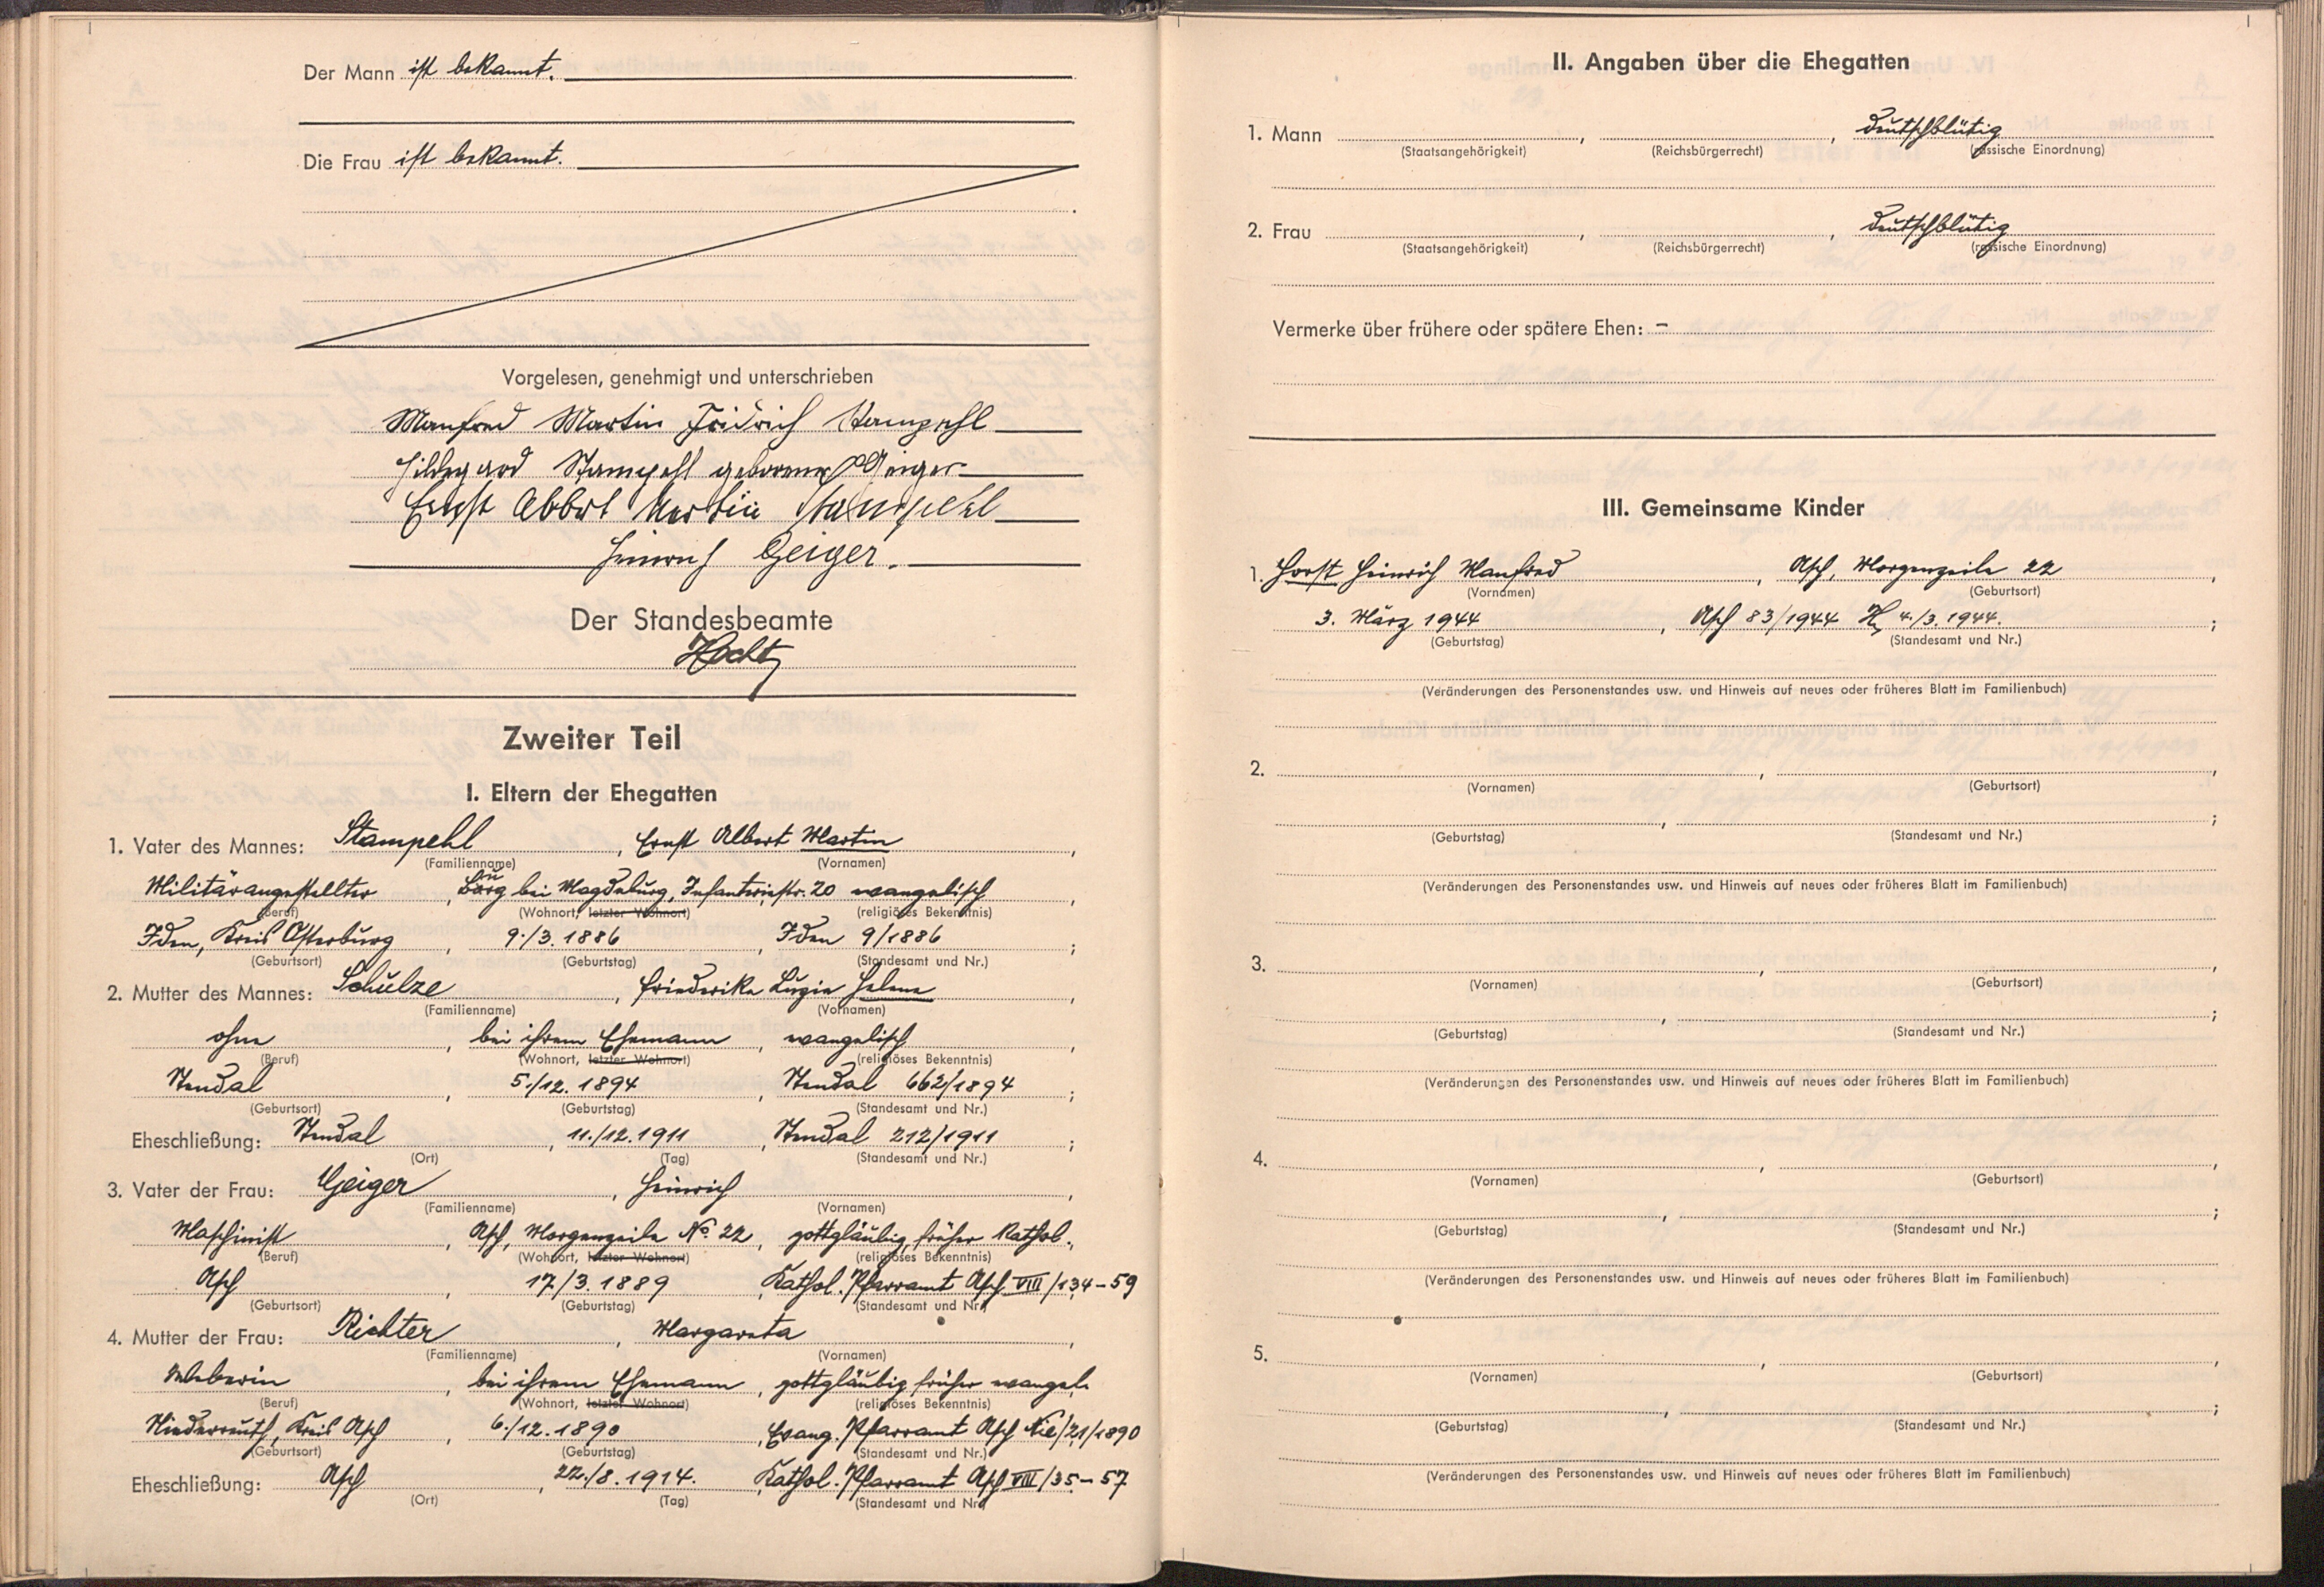 Der Mann ist bekannt.
Die Frau ist bekannt.
Vorgelesen, genehmigt und unterschrieben
Manfred Martin Fridrich Stampehl
Hildegard Stampehl geborene Geiger
Ernst Albert Martin Stampehl
Heinrich Geiger.
Der Standesbeamte
Zweiter Teil
I. Eltern der Ehegatten
1. Vater des Mannes: Stampehl, Ernst Albert Martin,
(Familienname) (Vornamen)
Militärangestellter, Burg bei Magdeburg, Infanteriestr. 20 evangelisch,
(Beruf) (Wohnort, letzter Wohnort) (religiöses Bekenntnis)
Iden, Kreis Osterburg, 9./3. 1886, Iden 9/1886;
(Geburtsort) (Geburtstag) (Standesamt und Nr.)
2. Mutter des Mannes: Schulze, Friederike Luzie Helene,
(Familienname) (Vornamen)
ohne, bei ihrem Ehemann, evangelisch,
(Beruf) (Wohnort, letzter Wohnort) (religiöses Bekenntnis)
Stendal, 5./12. 1894, Stendal 662/1894;
(Geburtsort) (Geburtstag) (Standesamt und Nr.)
Eheschließung: Stendal, 11./12. 1911, Stendal 212/1911;
(Ort) (Tag) (Standesamt und Nr.)
3. Vater der Frau: Geiger, Heinrich,
(Familienname) (Vornamen)
Maschinist, Asch, Morgenzeile No. 22, gottgläubig, früher kathol.,
(Beruf) (Wohnort, letzter Wohnort) (religiöses Bekenntnis)
Asch, 17/3. 1889, Kathol. Pfarramt Asch VIII/134-59
(Geburtsort) (Geburtstag) (Standesamt und Nr.)
4. Mutter der Frau: Richter, Margareta,
(Familienname) (Vornamen)
Weberin, bei ihrem Ehemann, gottgläubig früher evangel.
(Beruf) (Wohnort, letzter Wohnort) (religiöses Bekenntnis)
Niederreuth, Kreis Asch, 6./12. 1890, Evang. Pfarramt Asch Nie/21/1890
(Geburtsort) (Geburtstag) (Standesamt und Nr.)
Eheschließung: Asch, 22./8. 1914. Kathol. Pfarramt Asch VIII/35-57
(Ort) (Tag) (Standesamt und Nr.)
II. Angaben über die Ehegatten
1. Mann , , deutschblütig
(Staatsangehörigkeit) (Reichsbürgerrecht) (rassische Einordnung)
2. Frau , , deutschblütig
(Staatsangehörigkeit) (Reichsbürgerrecht) (rassische Einordnung)
Vermerke über frühere oder spätere Ehen: –
III. Gemeinsame Kinder
1. Horst Heinrich Manfred, Asch, Morgenzeile 22,
(Vornamen) (Geburtsort)
3. März 1944, Asch 83/1944 4./3. 1944.;
(Geburtstag) (Standesamt und Nr.)
(Veränderungen des Personenstandes usw. und Hinweis auf neues oder früheres Blatt im Familienbuch)
2. , ,
(Vornamen) (Geburtsort)
, ;
(Geburtstag) (Standesamt und Nr.)
(Veränderungen des Personenstandes usw. und Hinweis auf neues oder früheres Blatt im Familienbuch)
3. , ,
(Vornamen) (Geburtsort)
, ;
(Geburtstag) (Standesamt und Nr.)
(Veränderungen des Personenstandes usw. und Hinweis auf neues oder früheres Blatt im Familienbuch)
4. , ,
(Vornamen) (Geburtsort)
, ;
(Geburtstag) (Standesamt und Nr.)
(Veränderungen des Personenstandes usw. und Hinweis auf neues oder früheres Blatt im Familienbuch)
5. , ,
(Vornamen) (Geburtsort)
, ;
(Geburtstag) (Standesamt und Nr.)
(Veränderungen des Personenstandes usw. und Hinweis auf neues oder früheres Blatt im Familienbuch)